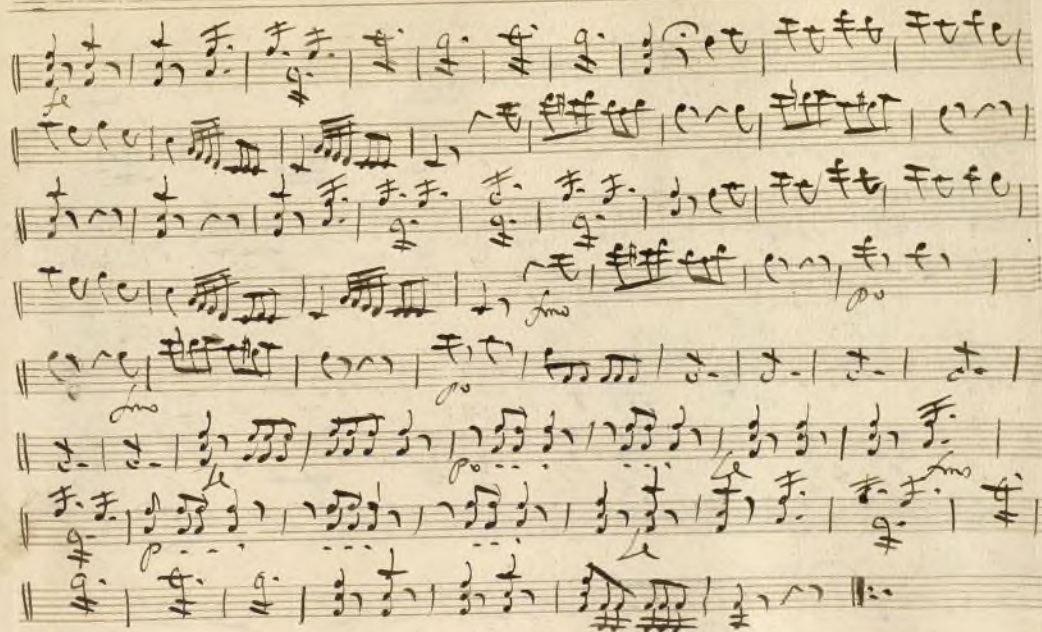 fe
fmo po
fmo po
fe po fe fmo
p fe